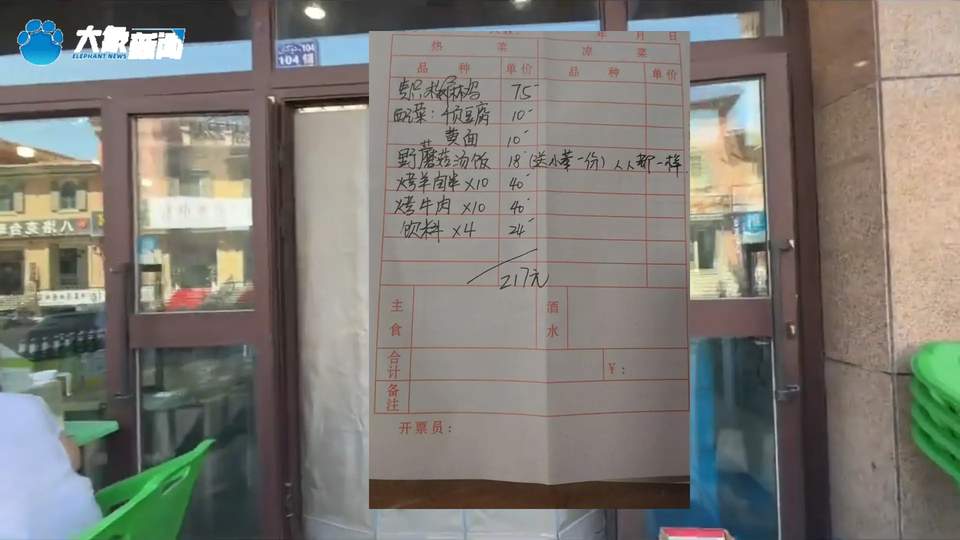 大象新闻
ELEPHANT NEWS
104
104铺
年 月 日
热 菜 凉 菜
品 种 单价 品 种 单价
75-
配菜：千页豆腐 10-
黄面 10-
野蘑菇汤饭 18-（送小菜一份）人人都一样
烤羊肉串 ×10 40-
烤牛肉 ×10 40-
饮料 ×4 24-
217元
主食 酒水
合计 ￥：
备注
开票员：